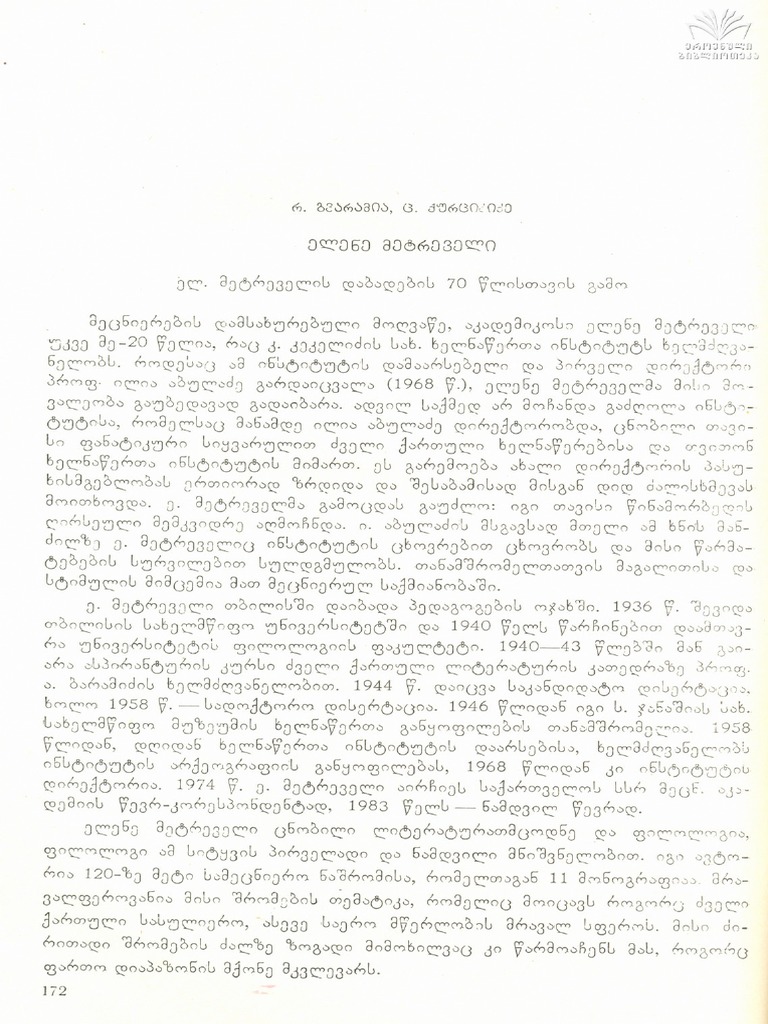 ეროვნული
ბიბლიოთეკა
რ. გვარამია, ც. ქურციკიძე
ელენე მეტრეველი
ელ. მეტრეველის დაბადების 70 წლისთავის გამო
მეცნიერების დამსახურებული მოღვაწე, აკადემიკოსი ელენე მეტრეველი
უკვე მე-20 წელია, რაც კ. კეკელიძის სახ. ხელნაწერთა ინსტიტუტს ხელმძღვა-
ნელობს. როდესაც ამ ინსტიტუტის დამაარსებელი და პირველი დირექტორი
პროფ. ილია აბულაძე გარდაიცვალა (1968 წ.), ელენე მეტრეველმა მისი მო-
ვალეობა გაუბედავად გადაიბარა. ადვილ საქმედ არ მოჩანდა გაძღოლა ინსტი-
ტუტისა, რომელსაც მანამდე ილია აბულაძე დირექტორობდა, ცნობილი თავი-
სი ფანატიკური სიყვარულით ძველი ქართული ხელნაწერებისა და თვითონ
ხელნაწერთა ინსტიტუტის მიმართ. ეს გარემოება ახალი დირექტორის პასუ-
ხისმგებლობას ერთიორად ზრდიდა და შესაბამისად მისგან დიდ ძალისხმევას
მოითხოვდა. ე. მეტრეველმა გამოცდას გაუძლო: იგი თავისი წინამორბედის
ღირსეული მემკვიდრე აღმოჩნდა. ი. აბულაძის მსგავსად მთელი ამ ხნის მან-
ძილზე ე. მეტრეველიც ინსტიტუტის ცხოვრებით ცხოვრობს და მისი წარმა-
ტებების სურვილებით სულდგმულობს. თანამშრომელთათვის მაგალითისა და
სტიმულის მიმცემია მათ მეცნიერულ საქმიანობაში.
ე. მეტრეველი თბილისში დაიბადა პედაგოგების ოჯახში. 1936 წ. შევიდა
თბილისის სახელმწიფო უნივერსიტეტში და 1940 წელს წარჩინებით დაამთავ-
რა უნივერსიტეტის ფილოლოგიის ფაკულტეტი. 1940—43 წლებში მან გაი-
არა ასპირანტურის კურსი ძველი ქართული ლიტერატურის კათედრაზე პროფ.
ა. ბარამიძის ხელმძღვანელობით. 1944 წ. დაიცვა საკანდიდატო დისერტაცია,
ხოლო 1958 წ. — სადოქტორო დისერტაცია. 1946 წლიდან იგი ს. ჯანაშიას სახ.
სახელმწიფო მუზეუმის ხელნაწერთა განყოფილების თანამშრომელია. 1958
წლიდან, დღიდან ხელნაწერთა ინსტიტუტის დაარსებისა, ხელმძღვანელობს
ინსტიტუტის არქეოგრაფიის განყოფილებას, 1968 წლიდან კი ინსტიტუტის
დირექტორია. 1974 წ. ე. მეტრეველი აირჩიეს საქართველოს სსრ მეცნ. აკა-
დემიის წევრ-კორესპონდენტად, 1983 წელს — ნამდვილ წევრად.
ელენე მეტრეველი ცნობილი ლიტერატურათმცოდნე და ფილოლოგია,
ფილოლოგი ამ სიტყვის პირველადი და ნამდვილი მნიშვნელობით. იგი ავტო-
რია 120-ზე მეტი სამეცნიერო ნაშრომისა, რომელთაგან 11 მონოგრაფიაა. მრა-
ვალფეროვანია მისი შრომების თემატიკა, რომელიც მოიცავს როგორც ძველი
ქართული სასულიერო, ასევე საერო მწერლობის მრავალ სფეროს. მისი ძი-
რითადი შრომების ძალზე ზოგადი მიმოხილვაც კი წარმოაჩენს მას, როგორც
ფართო დიაპაზონის მქონე მკვლევარს.
172